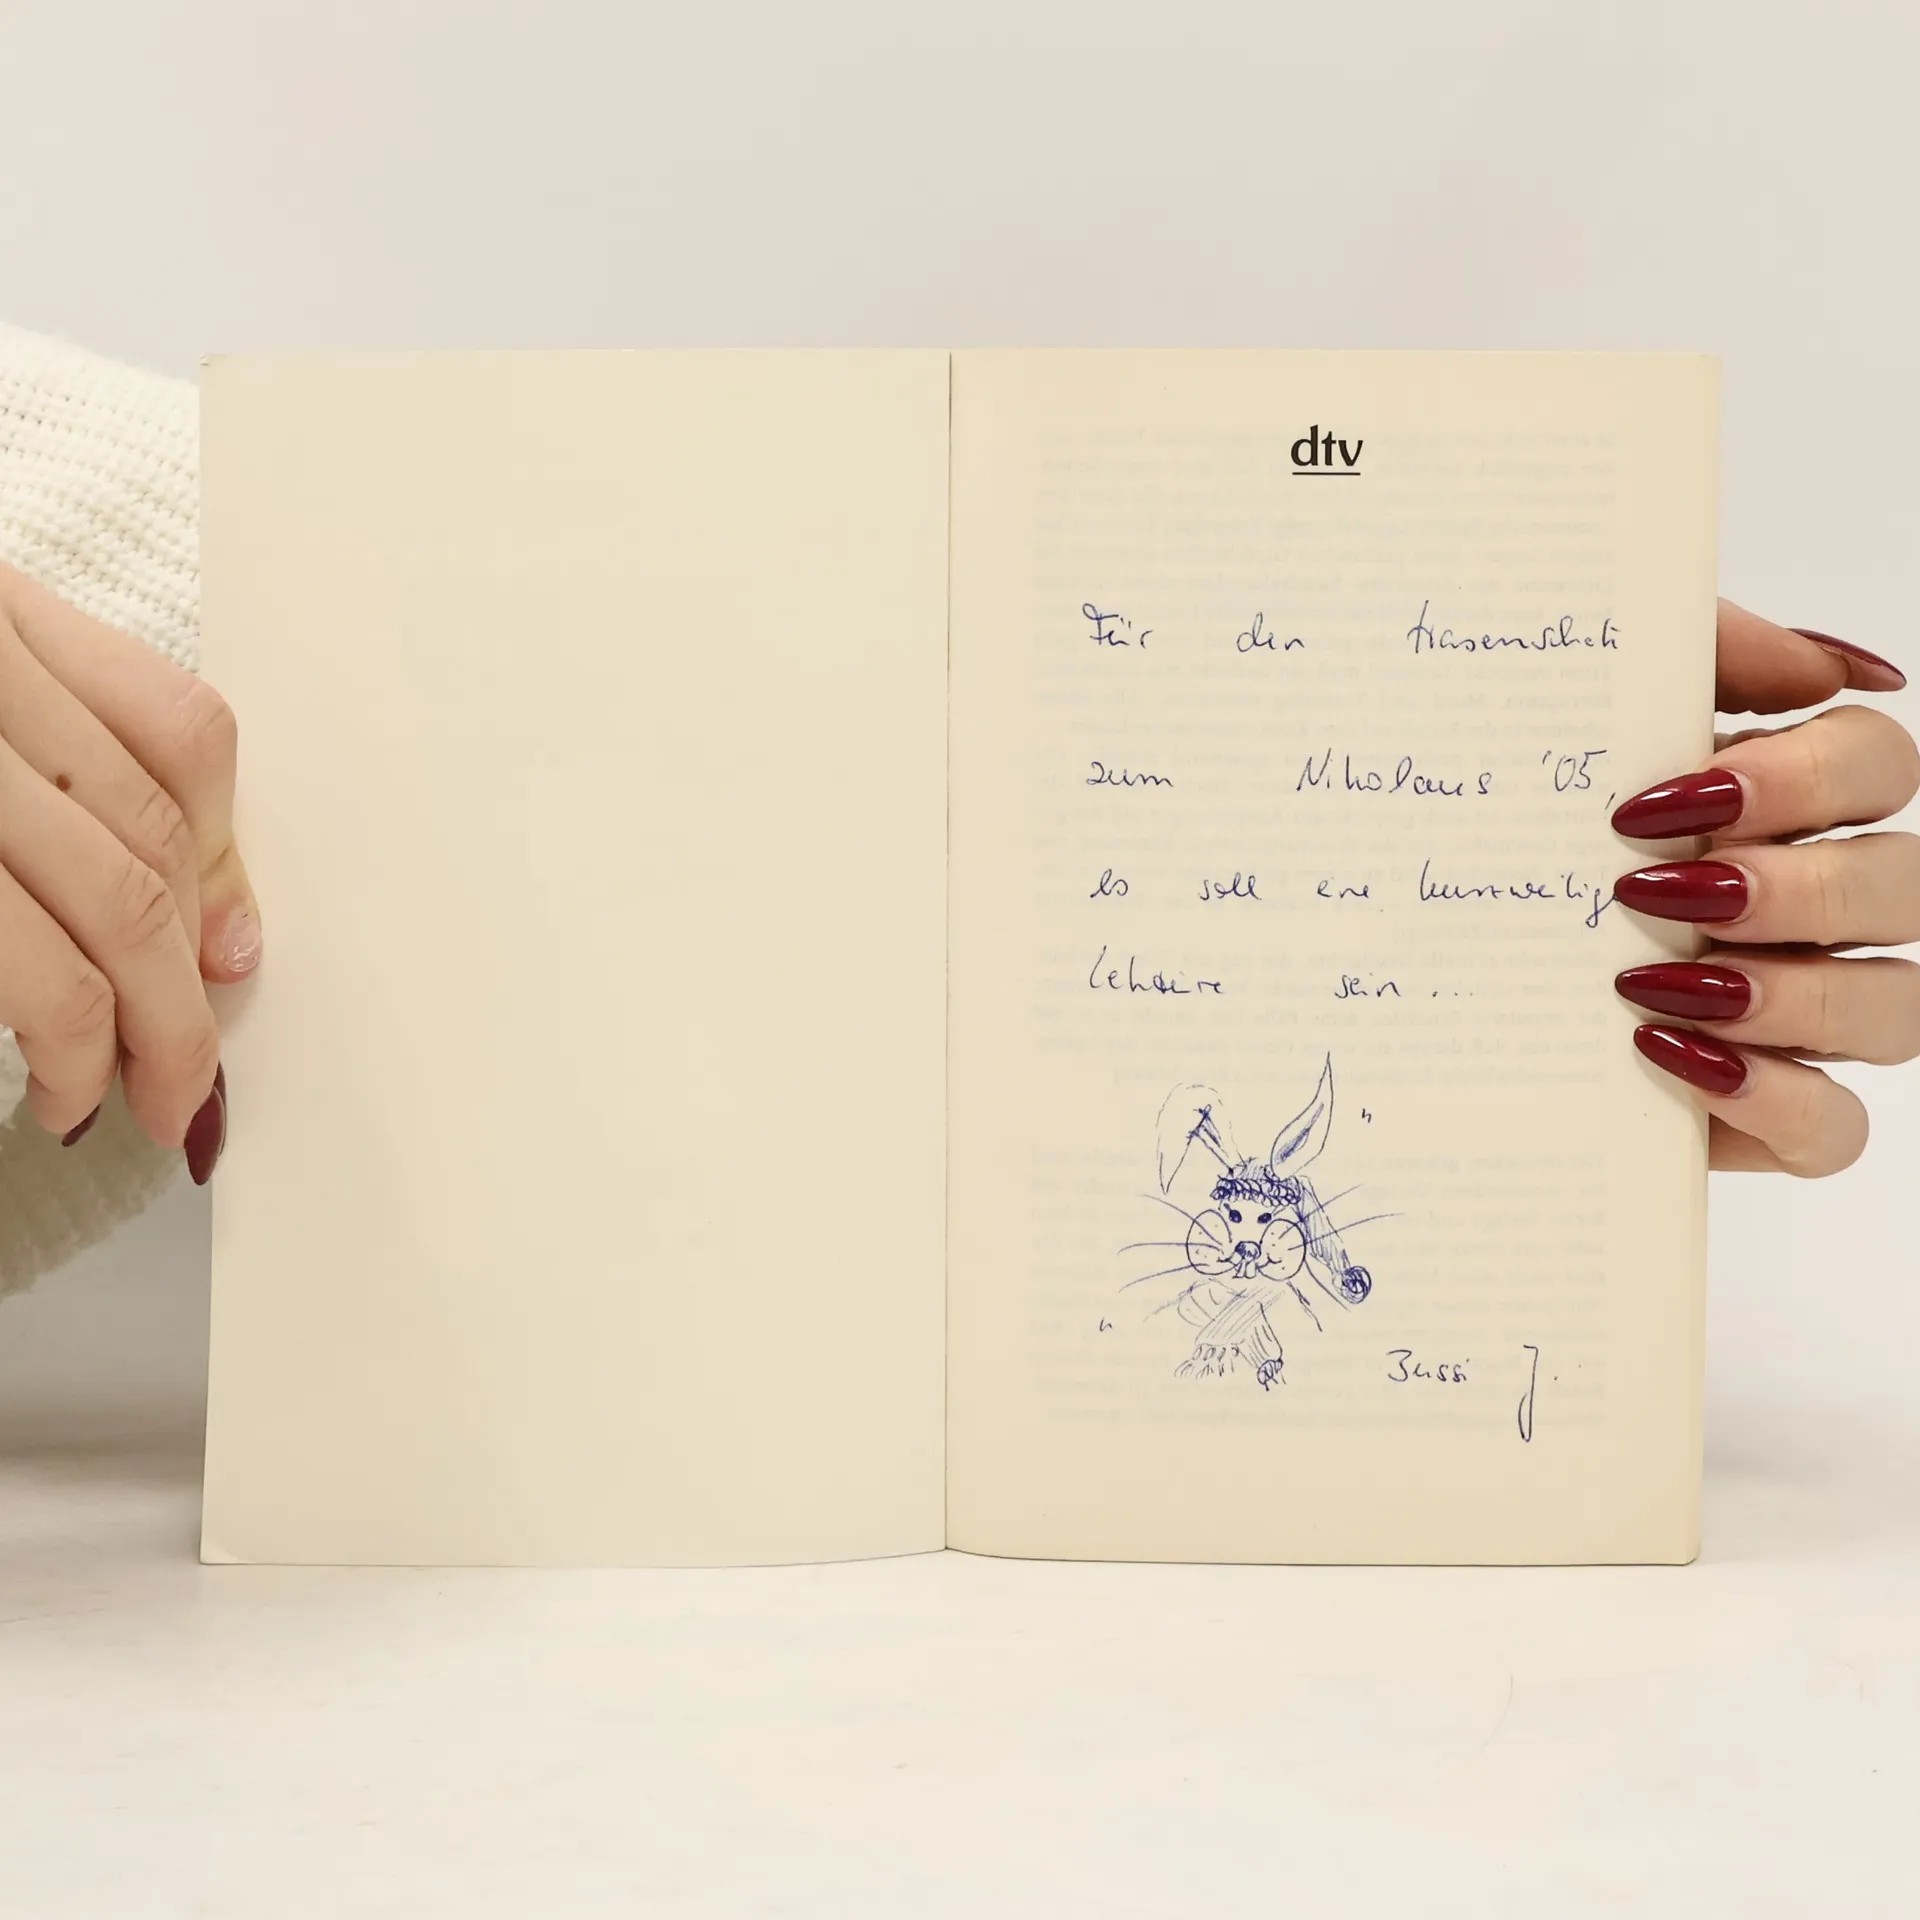 dtv
Für den Hasenschatz
zum Nikolaus '05,
Es soll eine kurzweilige
Lektüre sein ...
"
"
Bussi J.